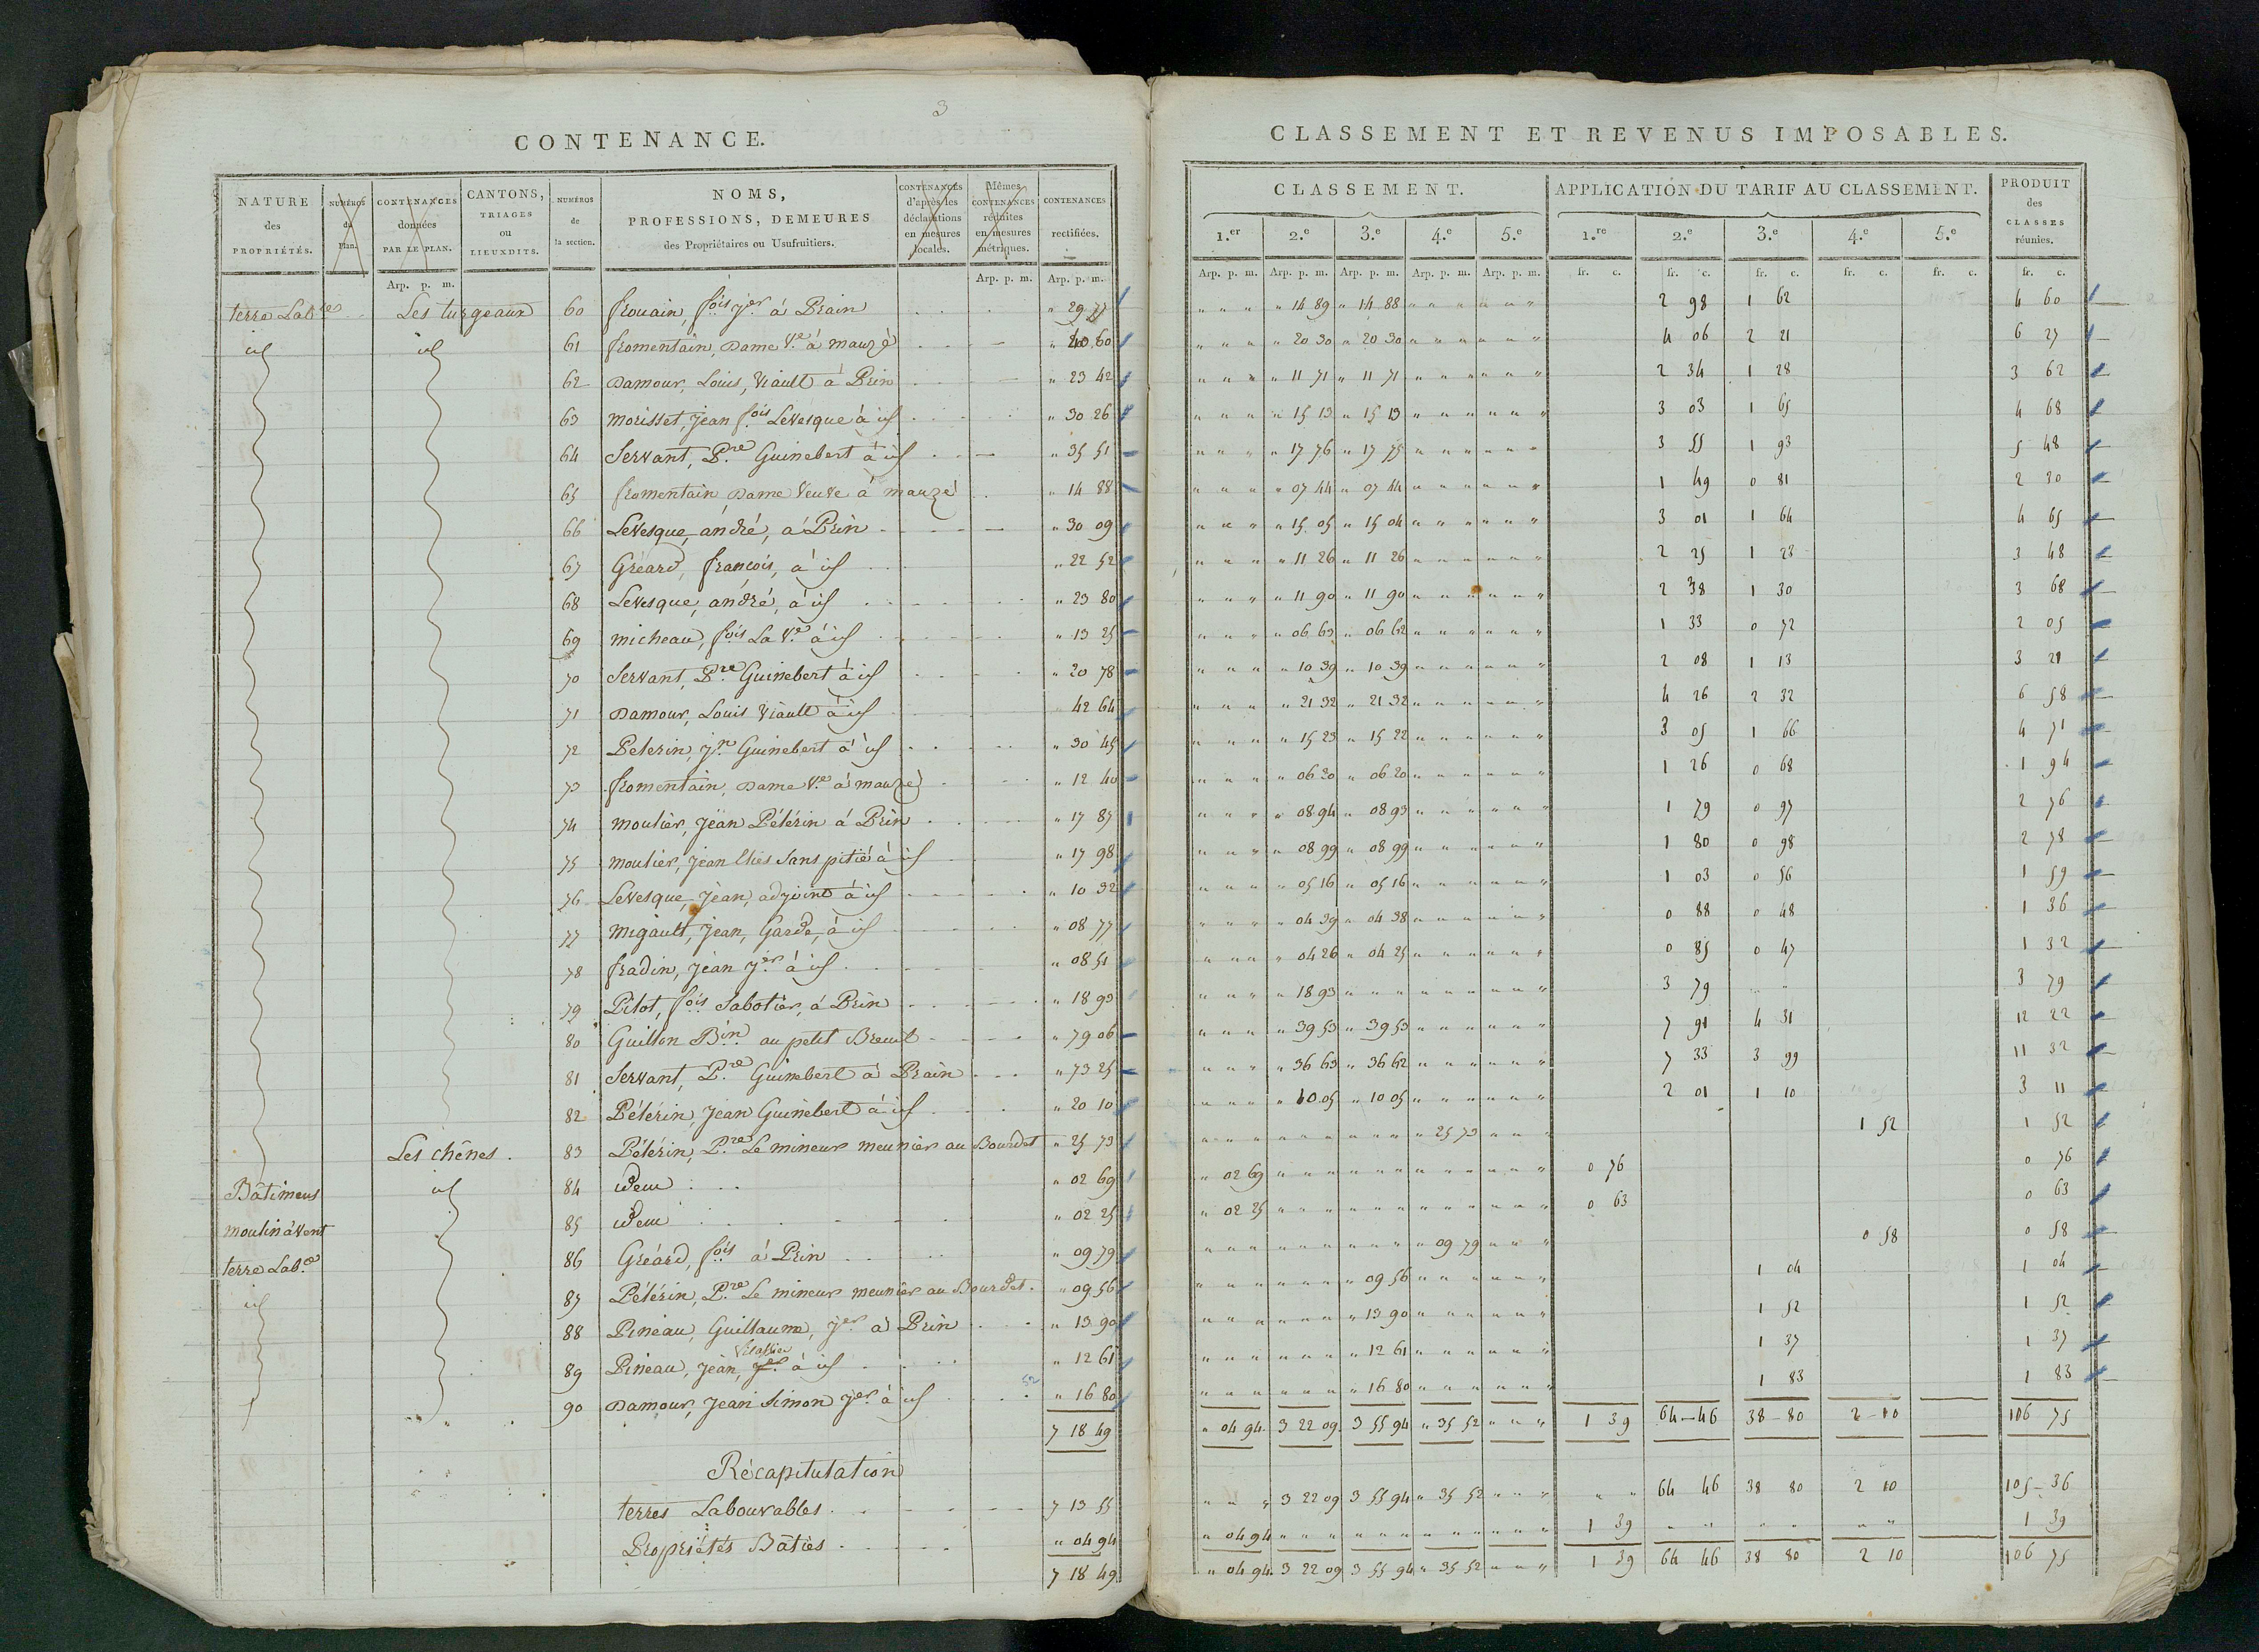 3
CONTENANCE.
NATURE des PROPRIÉTÉS. | NUMÉROS du Plan. | CONTENANCES données PAR LE PLAN. | CANTONS, TRIAGES ou LIEUXDITS. | NUMÉROS de la section. | NOMS, PROFESSIONS, DEMEURES des Propriétaires ou Usufruitiers. | CONTENANCES d'après les déclarations en mesures locales. | Mêmes CONTENANCES réduites en mesures métriques. | CONTENANCES rectifiées.
Arp. p. m. | Arp. p. m. | Arp. p. m.
terre Lab.re Les turgeaux 60 frouain, f.ois j.er à Prain " 29 77
id id 61 fromentain, Dame V.e à mauzé " 40 60
62 Damour, Louis, Viault à Prin " 23 42
63 morisset, jean f.ois Levesque à id " 30 26
64 Servant, P.re Guinebert à id " 35 51
65 fromentain Dame Veuve à mauzé " 14 88
66 Levesque, andré, à Prin " 30 09
67 Gréard, françois, à id " 22 52
68 Levesque, andré, à id " 23 80
69 micheau, f.ois La V.e à id " 13 25
70 Servant, P.re Guinebert à id " 20 78
71 Damour, Louis Viault à id 42 64
72 Pelerin, j.n Guinebert à id " 30 45
73 fromentain, Dame V.e à mauzé " 12 40
74 moulier, jean Pélérin à Prin " 17 87
75 moulier, jean Elies Sans pitié à id " 17 98
76 Levesque, jean, adjoint à id " 10 32
77 migault, jean, Garde, à id " 08 77
78 fradin, jean j.er à id " 08 51
79 Pilot, f.ois Sabotier, à Prin " 18 93
80 Guillon B.in au petit Breuil " 79 06
81 Servant, P.re Guinebert à Prain " 73 25
82 Pélérin, jean Guinebert à id " 20 10
Les chênes. 83 Pélérin, P.re Le mineur meunier au Bourdet " 25 73
Bâtimens id 84 idem " 02 69
moulin à Vent 85 idem " 02 25
terre Lab.e 86 Gréard, f.ois à Prin " 09 79
id 87 Pélérin, P.re Le mineur meunier au Bourdet. " 09 56
88 Pineau, Guillaume, j.er à Prin " 13 90
89 Pineau, jean, j.er à id " 12 61
90 Damour, jean Simon j.er à id 52 " 16 80
7 18 49
Récapitulation
terres Labourables 7 13 55
Propriétés Bâties " 04 94
7 18 49
CLASSEMENT ET REVENUS IMPOSABLES.
CLASSEMENT. | APPLICATION DU TARIF AU CLASSEMENT. | PRODUIT des CLASSES réunies.
1.er 2.e 3.e 4.e 5.e | 1.re 2.e 3.e 4.e 5.e
Arp. p. m. Arp. p. m. Arp. p. m. Arp. p. m. Arp. p. m. | fr. c. fr. c. fr. c. fr. c. fr. c. | fr. c.
" " " " 14 89 " 14 88 " " " " " " 2 98 1 62 4 60
" " " " 20 30 " 20 30 " " " " " " 4 06 2 21 6 27
" " " " 11 71 " 11 71 " " " " " " 2 34 1 28 3 62
" " " " 15 13 " 15 13 " " " " " " 3 03 1 65 4 68
" " " " 17 76 " 17 75 " " " " " " 3 55 1 93 5 48
" " " " 07 44 " 07 44 " " " " " " 1 49 0 81 2 30
" " " " 15 05 " 15 04 " " " " " " 3 01 1 64 4 65
" " " " 11 26 " 11 26 " " " " " " 2 25 1 23 3 48
" " " " 11 90 " 11 90 " " " " " " 2 38 1 30 3 68
" " " " 06 63 " 06 62 " " " " " " 1 33 0 72 2 05
" " " " 10 39 " 10 39 " " " " " " 2 08 1 13 3 21
" " " " 21 32 " 21 32 " " " " " " 4 26 2 32 6 58
" " " " 15 23 " 15 22 " " " " " " 3 05 1 66 4 71
" " " " 06 20 " 06 20 " " " " " " 1 26 0 68 1 94
" " " " 08 94 " 08 93 " " " " " " 1 79 0 97 2 76
" " " " 08 99 " 08 99 " " " " " " 1 80 0 98 2 78
" " " " 05 16 " 05 16 " " " " " " 1 03 0 56 1 59
" " " " 04 39 " 04 38 " " " " " " 0 88 0 48 1 36
" " " " 04 26 " 04 25 " " " " " " 0 85 0 47 1 32
" " " " 18 93 " " " " " " " " " 3 79 " " 3 79
" " " " 39 53 " 39 53 " " " " " " 7 91 4 31 12 22
" " " " 36 63 " 36 62 " " " " " " 7 33 3 99 11 32
" " " " 10 05 " 10 05 " " " " " " 2 01 1 10 3 11
" " " " " " " " " " 25 73 " " " 1 52 1 52
" 02 69 " " " " " " " " " " " " 0 76 0 76
" 02 25 " " " " " " " " " " " " 0 63 0 63
" " " " " " " " " " 09 79 " " " 0 58 0 58
" " " " " " " 09 56 " " " " " " 1 04 1 04
" " " " " " " 13 90 " " " " " " 1 52 1 52
" " " " " " " 12 61 " " " " " " 1 37 1 37
" " " " " " " 16 80 " " " " " " 1 83 1 83
" 04 94 3 22 09 3 55 94 " 35 52 " " " 1 39 64 46 38 80 2 10 106 75
" " " 3 22 09 3 55 94 " 35 52 " " " " " 64 46 38 80 2 10 105 36
" 04 94 " " " " " " " " " " " " 1 39 " " " " " " 1 39
" 04 94 3 22 09 3 55 94 " 35 52 " " " 1 39 64 46 38 80 2 10 106 75